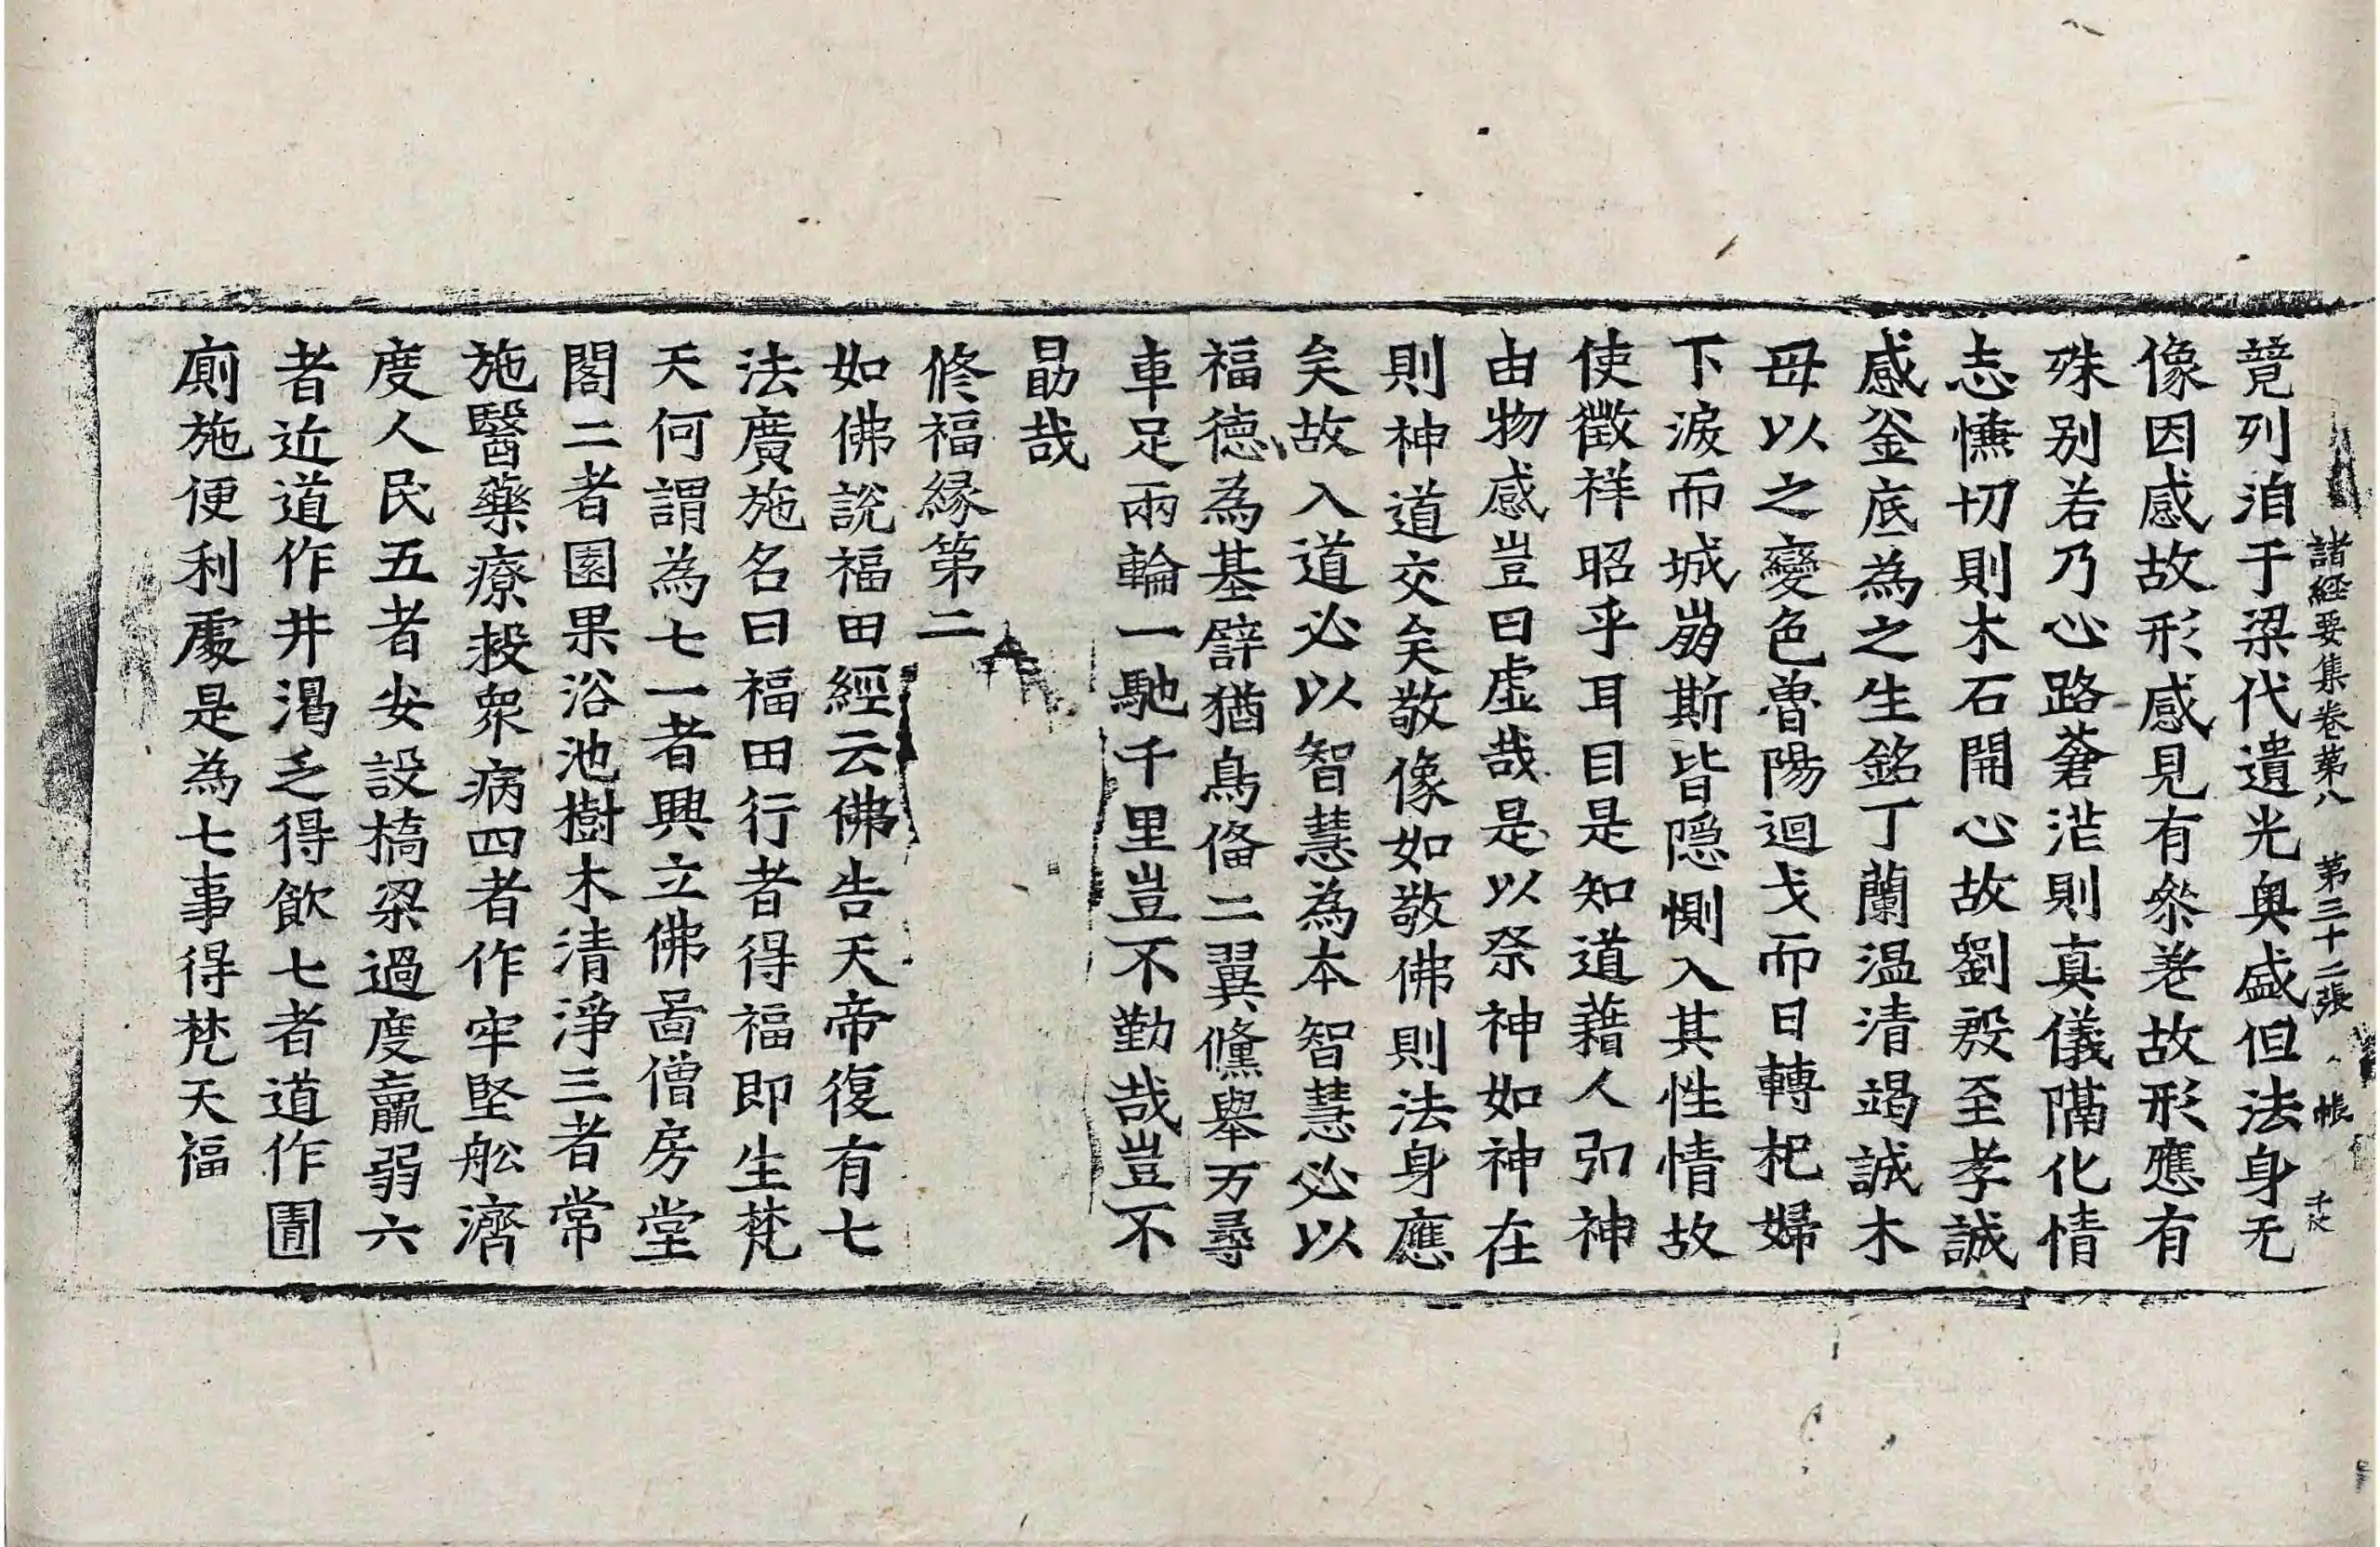 諸經要集卷第八 第三十二張 帳
競列洎于梁代遺光奥盛但法身无
像因感故形感見有叅差故形應有
殊别若乃心路蒼茫則真儀隔化情
志慊切則木石開心故劉殷至孝誠
感釜庾為之生銘丁蘭温清竭誠木
母以之變色魯陽迴戈而日轉杞婦
下淚而城崩斯皆隱惻入其性情故
使徵祥昭乎耳目是知道藉人弘神
由物感豈曰虚哉是以祭神如神在
則神道交矣敬像如敬佛則法身應
矣故入道必以智慧為本智慧必以
福德為基譬猶鳥俻二翼儵舉万尋
車足兩輪一馳千里豈不勤哉豈不
勗哉
修福縁第二
如佛說福田經云佛告天帝復有七
法廣施名曰福田行者得福即生梵
天何謂為七一者興立佛啚僧房堂
閣二者園果浴池樹木清淨三者常
施醫藥療救衆病四者作牢堅舩濟
度人民五者安設橋梁過度羸弱六
者近道作井渴乏得飲七者道作圊
廁施便利處是為七事得梵天福